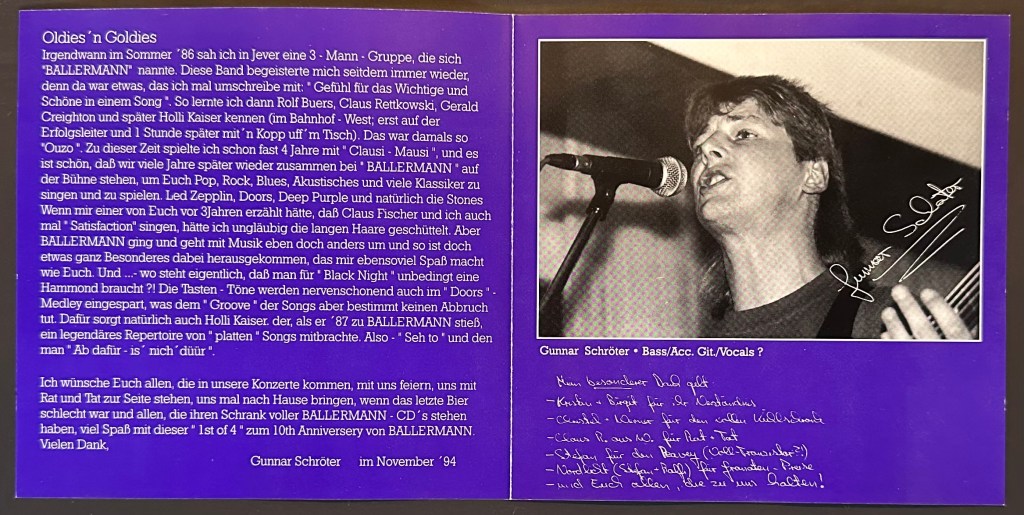 Oldies ´n Goldies
Irgendwann im Sommer ´86 sah ich in Jever eine 3 - Mann - Gruppe, die sich
"BALLERMANN" nannte. Diese Band begeisterte mich seitdem immer wieder,
denn da war etwas, das ich mal umschreibe mit: " Gefühl für das Wichtige und
Schöne in einem Song ". So lernte ich dann Rolf Buers, Claus Rettkowski, Gerald
Creighton und später Holli Kaiser kennen (im Bahnhof - West; erst auf der
Erfolgsleiter und 1 Stunde später mit´n Kopp uff´m Tisch). Das war damals so
"Ouzo ". Zu dieser Zeit spielte ich schon fast 4 Jahre mit " Clausi - Mausi ", und es
ist schön, daß wir viele Jahre später wieder zusammen bei " BALLERMANN " auf
der Bühne stehen, um Euch Pop, Rock, Blues, Akustisches und viele Klassiker zu
singen und zu spielen. Led Zepplin, Doors, Deep Purple und natürlich die Stones
Wenn mir einer von Euch vor 3Jahren erzählt hätte, daß Claus Fischer und ich auch
mal " Satisfaction" singen, hätte ich ungläubig die langen Haare geschüttelt. Aber
BALLERMANN ging und geht mit Musik eben doch anders um und so ist doch
etwas ganz Besonderes dabei herausgekommen, das mir ebensoviel Spaß macht
wie Euch. Und ...- wo steht eigentlich, daß man für " Black Night " unbedingt eine
Hammond braucht ?! Die Tasten - Töne werden nervenschonend auch im " Doors " -
Medley eingespart, was dem " Groove " der Songs aber bestimmt keinen Abbruch
tut. Dafür sorgt natürlich auch Holli Kaiser. der, als er ´87 zu BALLERMANN stieß,
ein legendäres Repertoire von " platten " Songs mitbrachte. Also - " Seh to " und den
man " Ab dafür - is´ nich´düür ".
Ich wünsche Euch allen, die in unsere Konzerte kommen, mit uns feiern, uns mit
Rat und Tat zur Seite stehen, uns mal nach Hause bringen, wenn das letzte Bier
schlecht war und allen, die ihren Schrank voller BALLERMANN - CD´s stehen
haben, viel Spaß mit dieser " 1st of 4 " zum 10th Anniversery von BALLERMANN.
Vielen Dank,
Gunnar Schröter im November ´94
Gunnar Schröter
Gunnar Schröter • Bass/Acc. Git./Vocals ?
Mein besonderer Dank gilt:
- Kristin + Birgit für ihr Verständnis
- Christel + Werner für den vollen Kühlschrank
- Claus R. aus W. für Rat + Tat
- Stefan für den Peavey (Voll-Transistor?!)
- Nordkolt (Stefan + Ralf) für Preise
- und Euch allen, die zu uns halten!